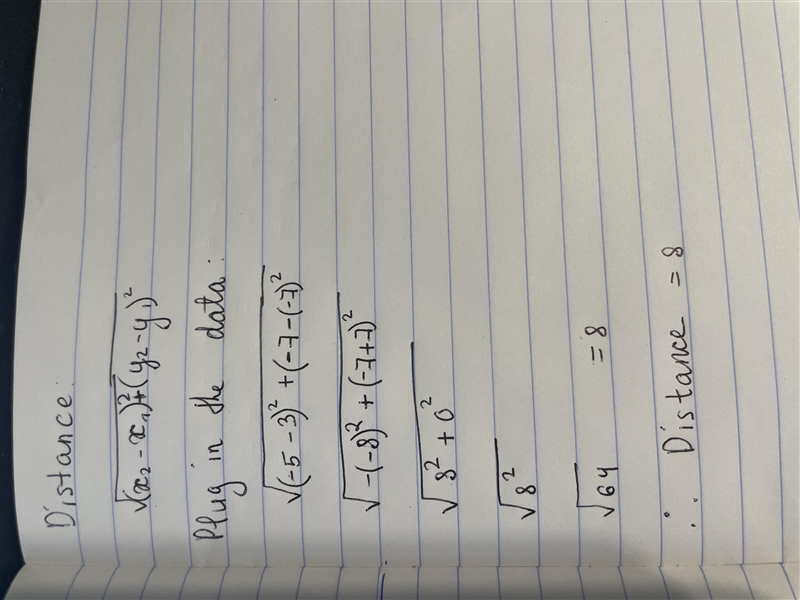 Distance:
√(x₂-x₁)²+(y₂-y₁)²
Plug in the data:
√(-5-3)²+(-7-(-7)²
√-(-8)²+(-7+7)²
√8²+0²
√8²
√64 =8
∴ Distance = 8